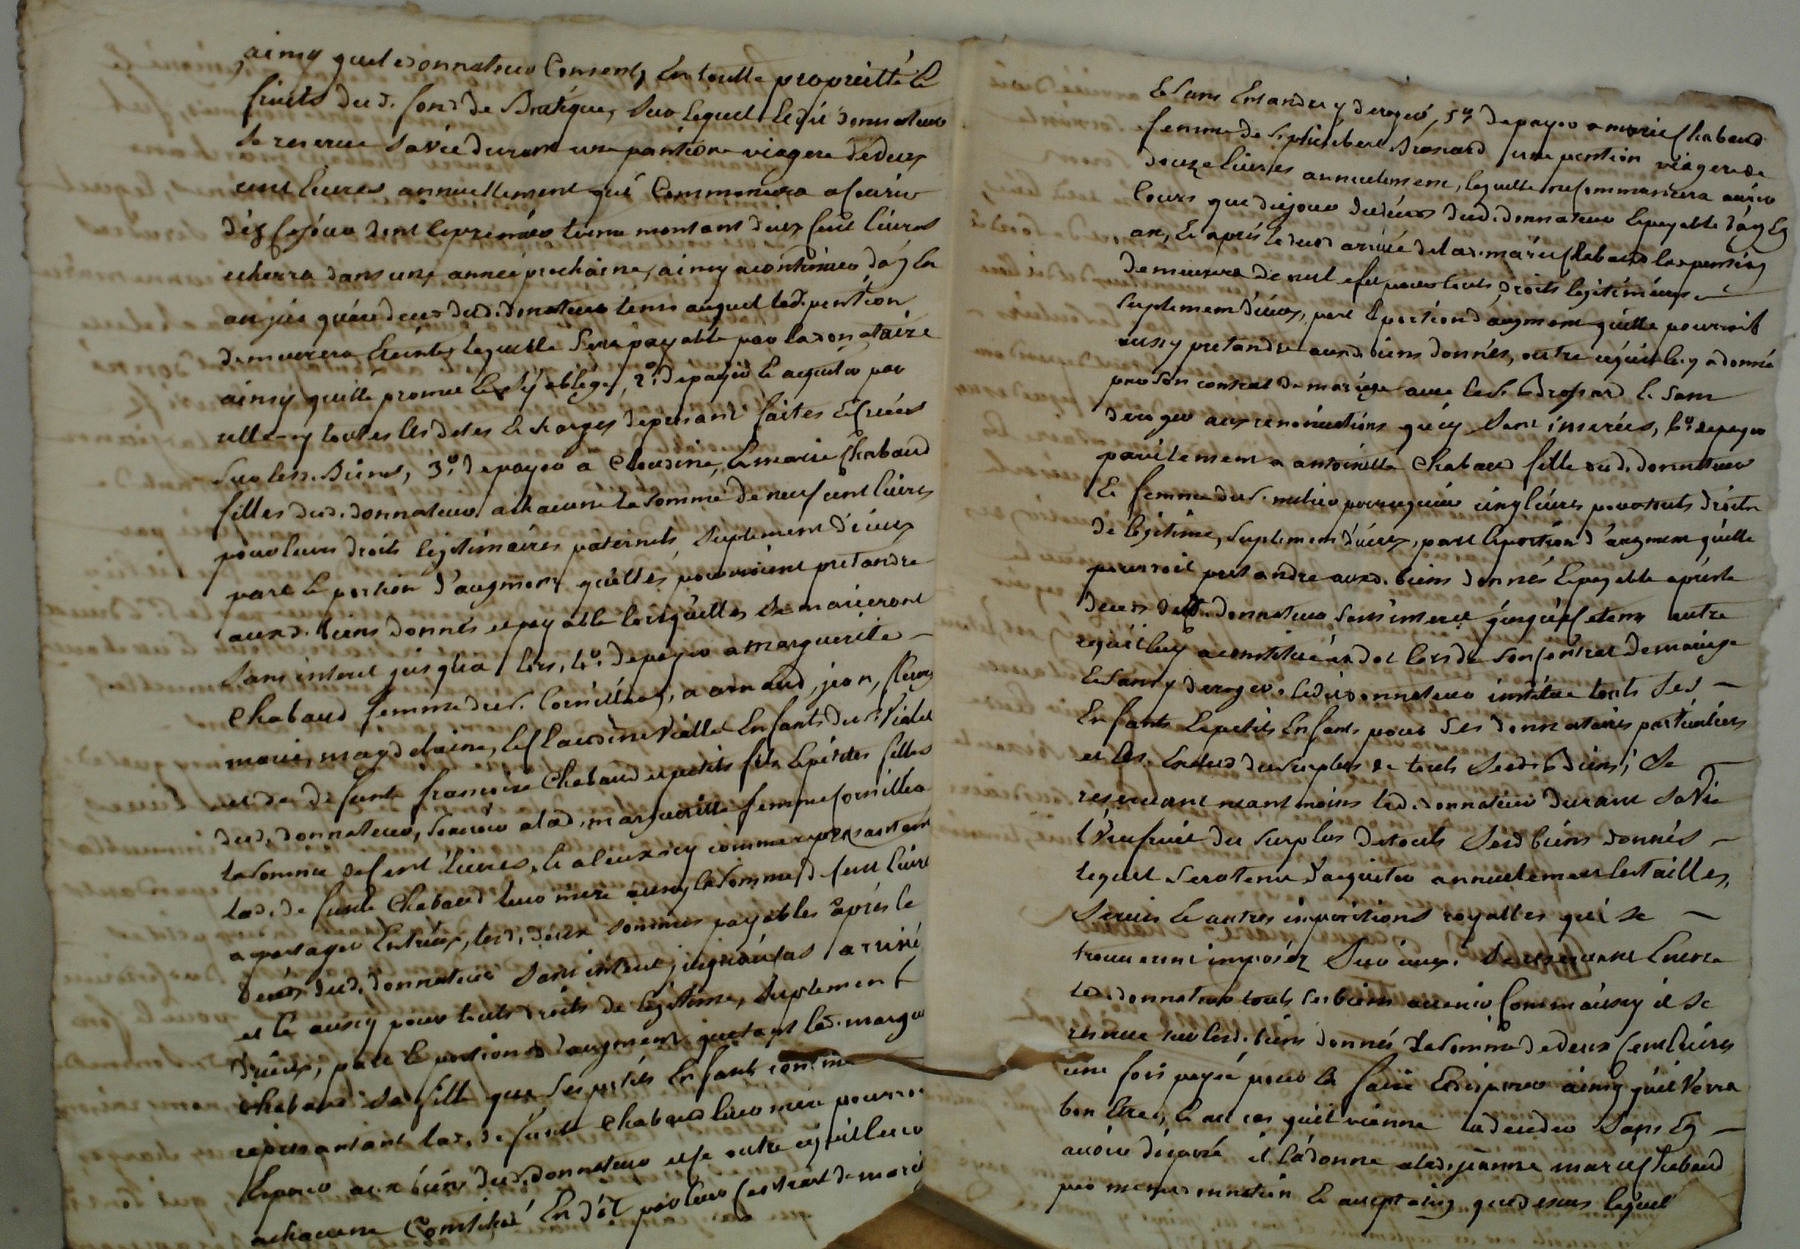 ainsy quil donnateur Consent, En toutte proprieté &
fruits dud. fond de Bratique, Sur lequel ledit donnateur
Se reserve Sa vie durant une pantion viagere de deux
cent livres annuellement qui Commencera a Courir
dont le premier terme montant deux cent livres
echerra dans une année prochaine, ainsy a continuer d'an En
an jus qu'au deces dud. donateur tems auquel lad. pention
demeurera Eteinte, laquelle Sera payable par la donataire
ainsy quelle promet & Sy oblige, 2º. de payer & acquiter par
elle toutes les detes & charges depuisant faites & créées
Sur lesd. Biens, 3º. de payer à Claudine, & marie Chabaud
filles dud. donnateur a chacune la Somme de neuf cent livres
pour leurs droits legitimaires paternels, Suplement d'iceux
part & portion d'augment qu'elles pouvroient pretandre
auxd. biens donnés et payable lorsqu'elles Se marieront
Sans interet jusqu'a lors, 4º. de payer a marguerite
Chabaud femme du S. Cornillon, a arnaud, jean,
marie, magdelaine, & Claudine Viallet Enfants du S. Vialet
et de defunte françoise Chabaud et petits fils & petites filles
dud. donnateur, Scavoir a lad. marguerite femme Cornillon
la Somme de Cent livres, & a ceux cy comme representant
lad. defunte Chabaud leur mere aussy la Somme de Cent livres
a partager Entreux, lesd. deux Sommes payables après le
deces dud. donnateur Sans interet jusqu'au cas arrivé
et ce aussy pour touts droits de legitime, Suplement
d'iceux, part & portion d'augment, que tant lad. margte
Chabaud Sa fille que Ses petits Enfants comme
representant lad. defunte Chabaud leur mere pourroient
Esperer aux biens dud. donnateur et ce outre ce qu'il leur
a chacune Constitué En dot par leur Contrat de mariage
& Sans Entandre y deroger, 5º. de payer a marie Chabaud
femme de S. philibert Brossard une pention viagere de
douze livres annuelement, laquelle ne Commancera a avoir
Cours que du jour du deces dud. donnateur & payable d'an En
an, & après le deces arrivé de lad. marie Chabaud la pention
demeurera de nul efet pour touts droits legitimaires
Suplement d'iceux, part & portion d'augment qu'elle pourroit
aussy pretandre auxd. biens donnés, outre ce qu'il luy a donné
par Son contrat de mariage avec led. S. Brossard & Sans
deroger aux renonciations qui y Sont inserées, 6º. de payer
pareillement a antoinette Chabaud fille dud. donnateur
& femme du S. cinq livres pour touts droits
de legitime, Suplement d'iceux, part & portion d'augment qu'elle
pourroit pretandre auxd. biens donnés & payable après le
deces dud. donnateur Sans interet jusqu'a ce tems outre
ce qu'il luy a constitué en dot lors de Son Contrat de mariage
& Sans y deroger. ledit donnateur institue touts Ses
Enfants & petits Enfants pour Ses donnataires particuliers
et les Exclud du Surplus de touts Sesd. Biens, Se
reservant neantmoins led. donnateur durant Sa Vie
l'Usufruit du Surplus de touts Sesd biens donnés
lequel Sera tenu d'acquiter annuelement les tailles,
Servis & autres impositions royalles qui Se
trouveront imposéz Sur iceux. Se reservant Encore
led. donnateur touts Ses biens avenir Comm'aussy il Se
reserve Sur lesd. biens donnés la Somme de deux Cent livres
une fois payée pour En faire & disposer ainsy qu'il Verra
bon Etre, & au cas qu'il vienne a deceder Sans En
avoir disposé il la donne a lad. jeanne marie Chabaud
par meme donnation & acceptation que dessus lequel